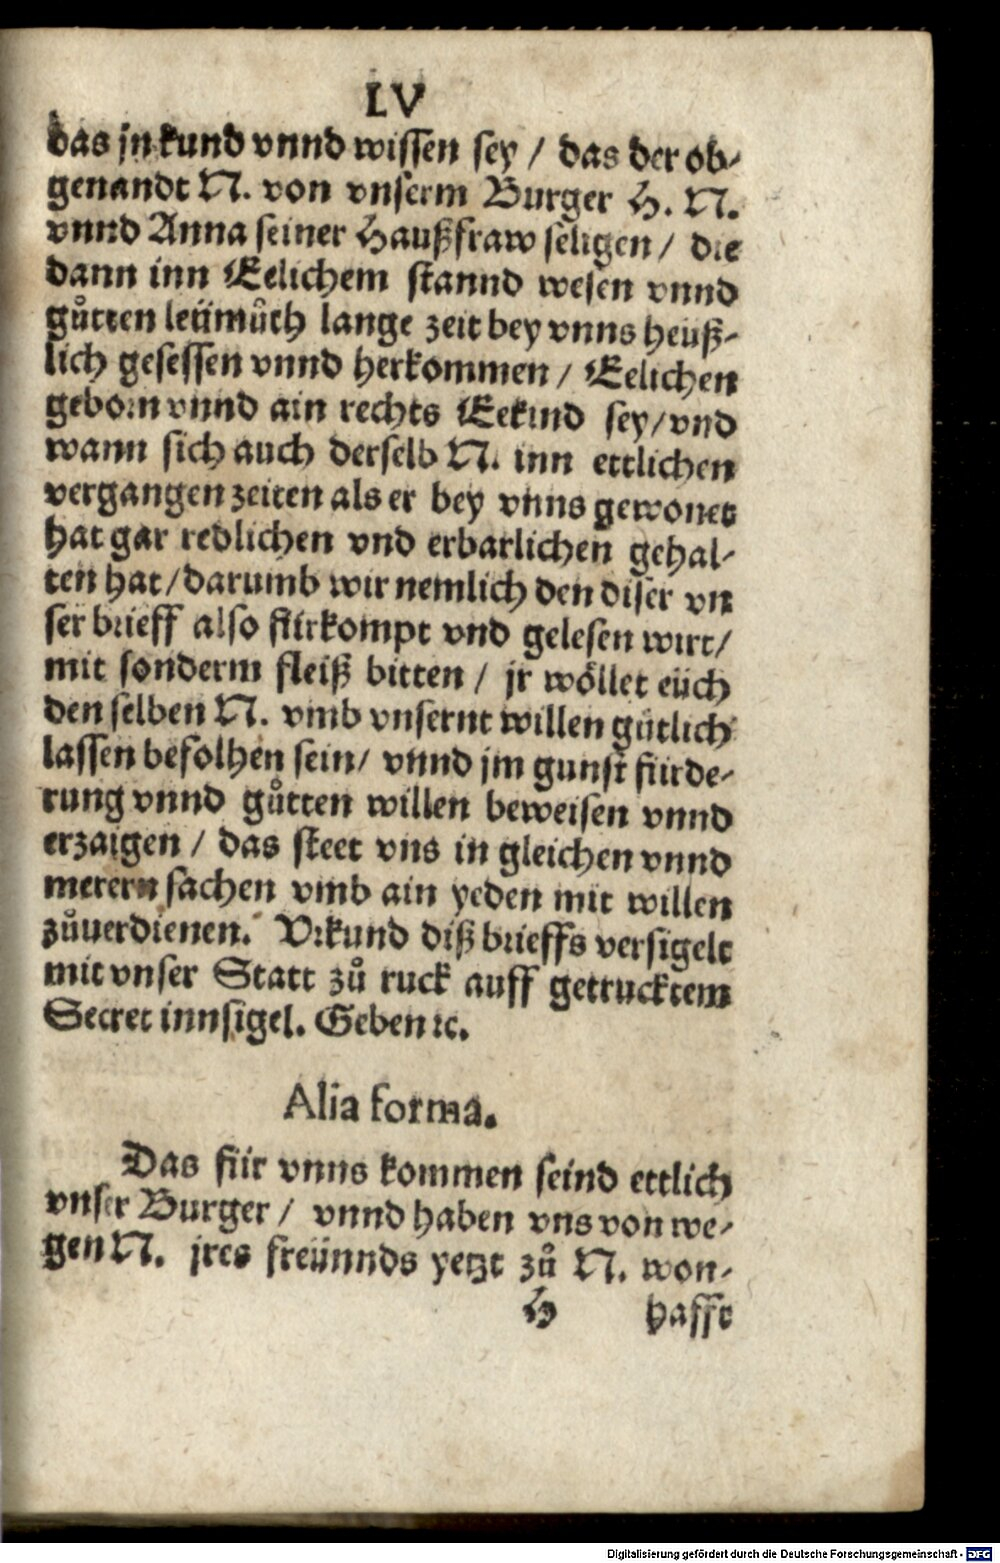 LV
das jn kund vnnd wissen sey / das der ob-
genandt N. von vnserm Burger H. N.
vnnd Anna seiner Haußfraw seligen / die
dann inn Eelichem stannd wesen vnnd
gůtten leümůth lange zeit bey vnns heüß-
lich gesessen vnnd herkommen / Eelichen
geborn vnnd ain rechts Eekind sey / vnd
wann sich auch derselb N. inn ettlichen
vergangen zeiten als er bey vnns gewonet
hat gar redlichen vnd erbarlichen gehal-
ten hat / darumb wir nemlich den diser vn
ser brieff also fürkompt vnd gelesen wirt /
mit sonderm fleiß bitten / jr wöllet eüch
den selben N. vmb vnsernt willen gütlich
lassen befolhen sein / vnnd jm gunst fürde-
rung vnnd gůtten willen beweisen vnnd
erzaigen / das steet vns in gleichen vnnd
merern sachen vmb ain yeden mit willen
zůuerdienen. Vrkund diß brieffs versigelt
mit vnser Statt zů ruck auff getrucktem
Secret innsigel. Geben ꝛc.
Alia forma.
Das für vnns kommen seind ettlich
vnser Burger / vnnd haben vns von we-
gen N. jres freünnds yetzt zů N. won-
H hafft
Digitalisierung gefördert durch die Deutsche Forschungsgemeinschaft - DFG